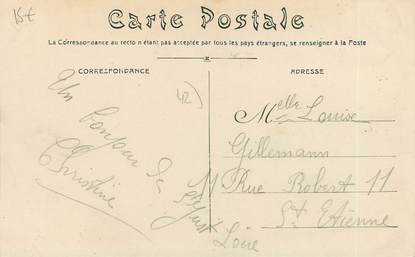 15€
Carte Postale
La Correspondance au recto n'étant pas acceptée par tous les pays étrangers, se renseigner à la Poste
CORRESPONDANCE
42
Un bonjour de
St Just
Christine
ADRESSE
Melle Louise
Gillemann
11 Rue Robert 11
St Etienne
Loire